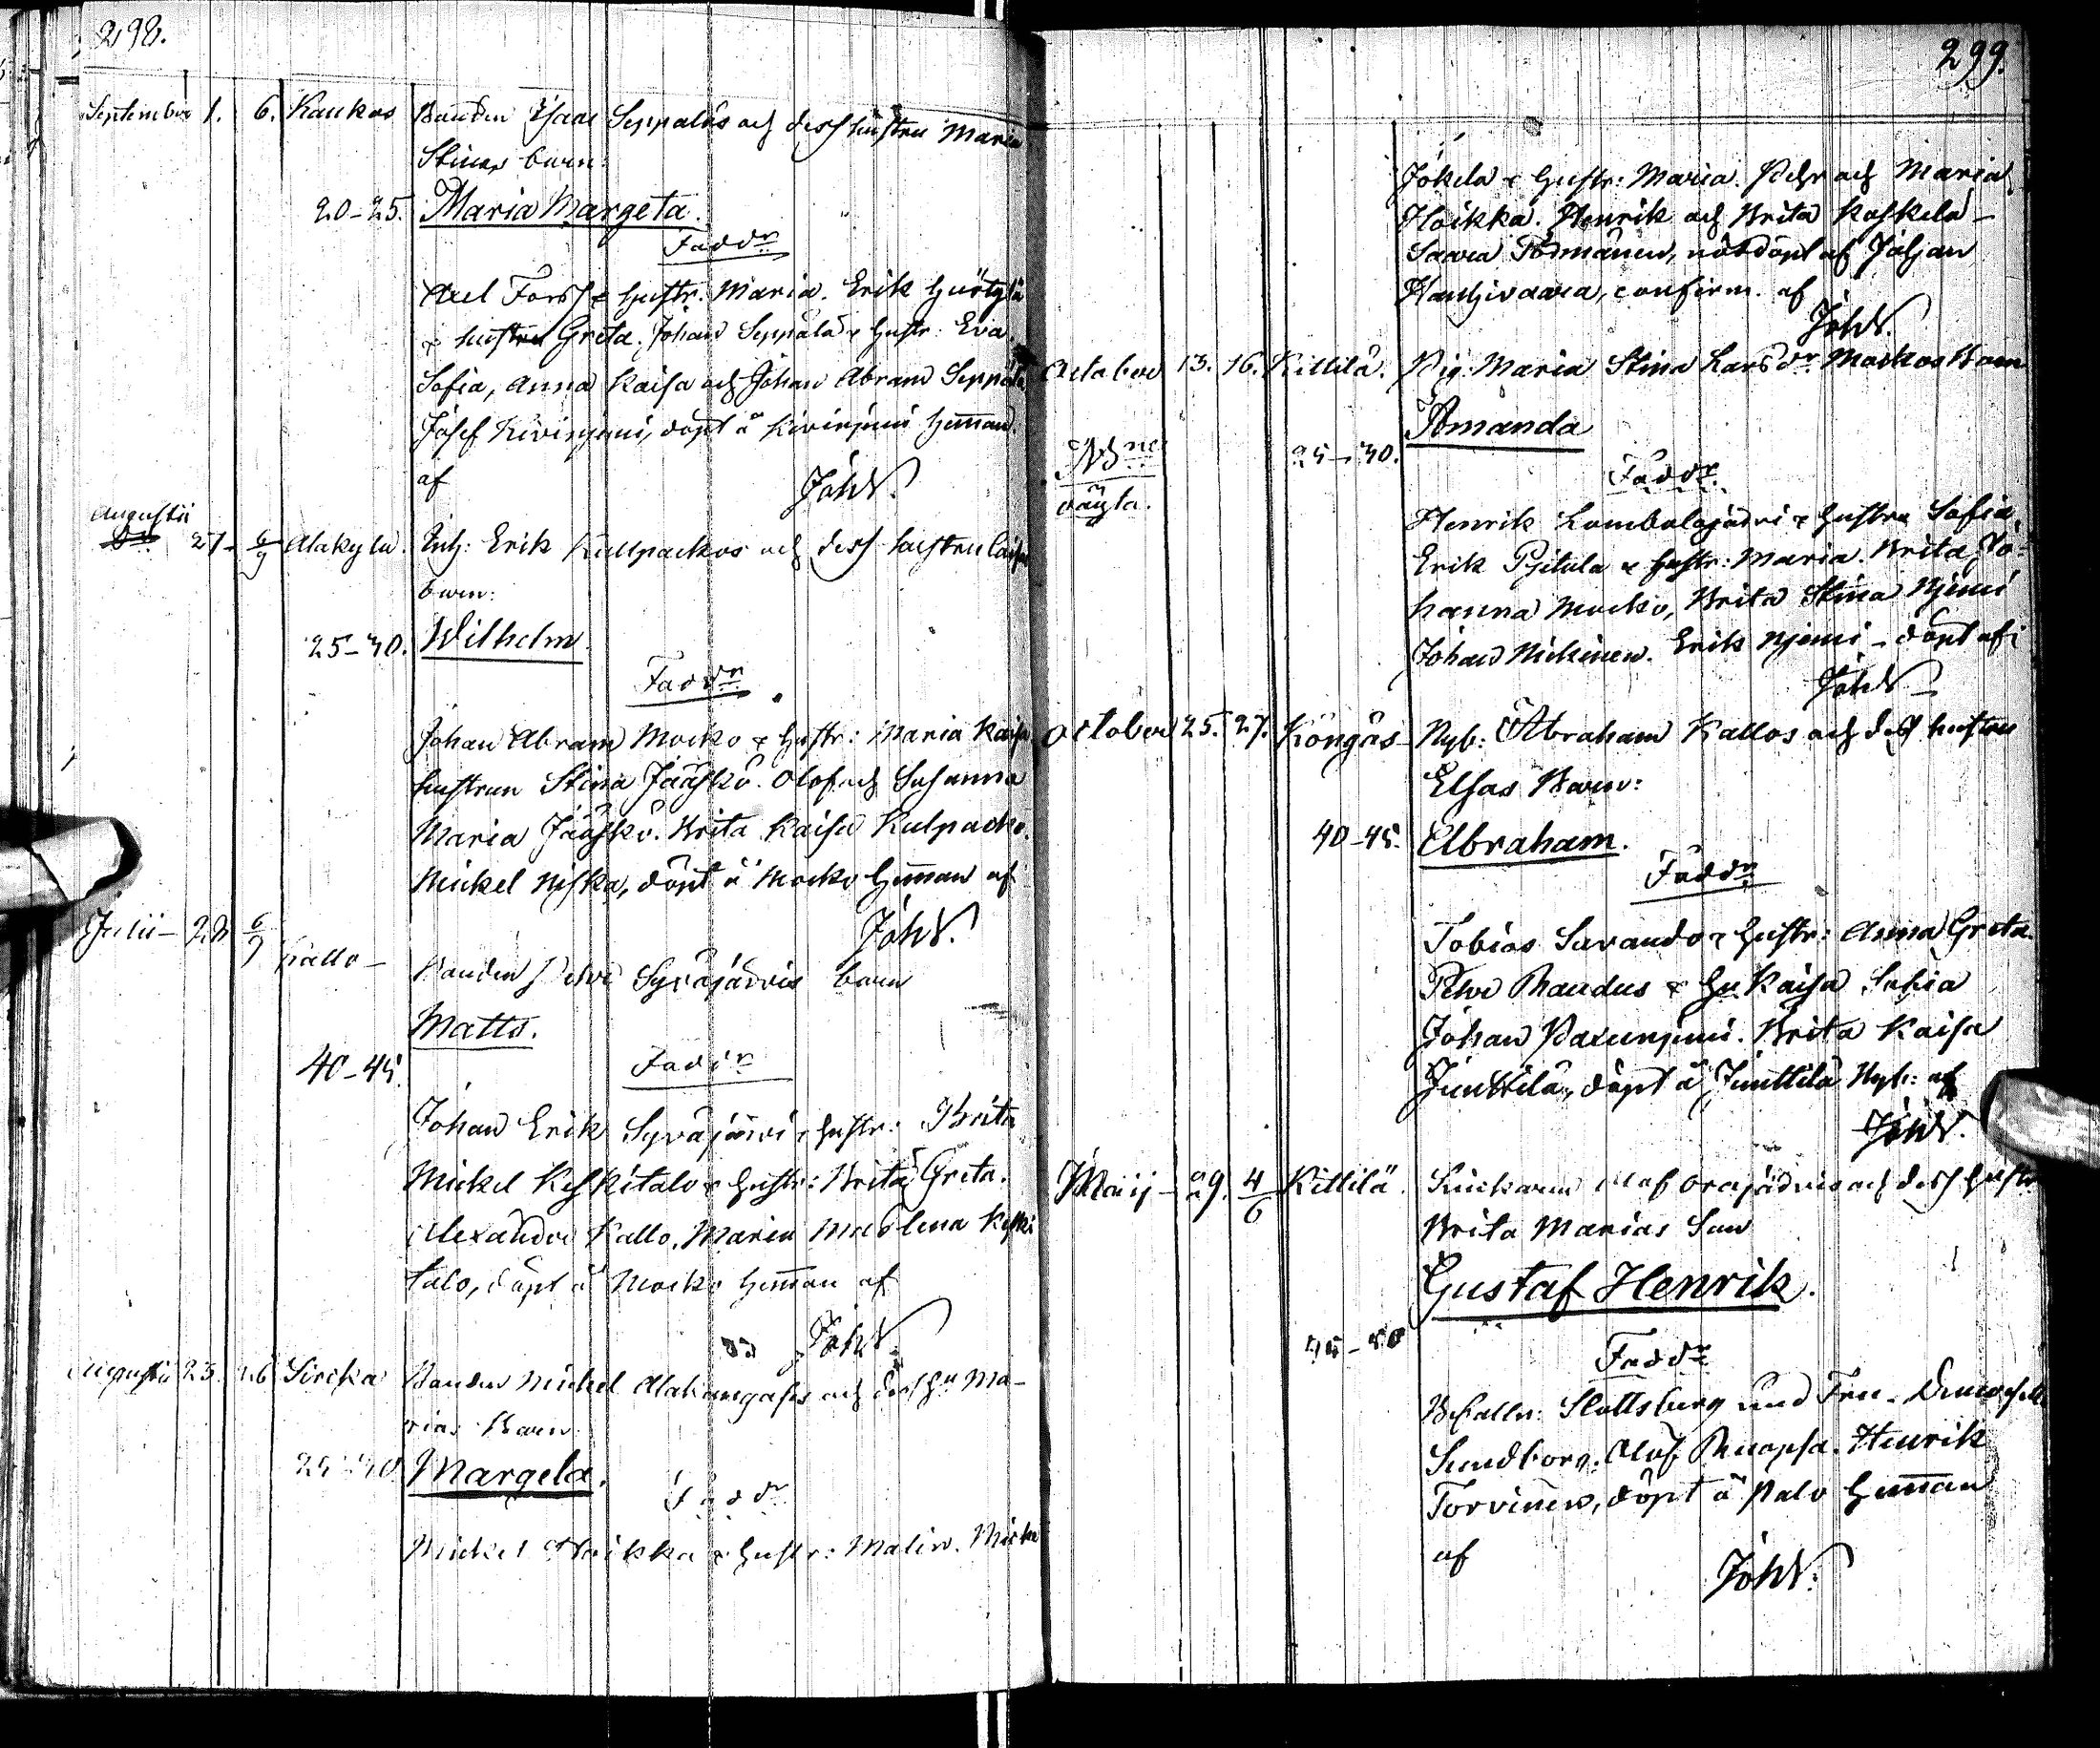 298.
September 1. 6. Kaukos Bonden Isaac Seppaläs och dess hustru Maria
Stinas barn:
20-25. Maria Margeta.
Faddr
Axel Forss & hustr. Maria. Erik
& hustru Greta. Johan Seppälä & hustr: Eva
Sofia, Anna Kaisa och Johan Abram Seppälä
Josef Kivinjemi, döpt å Kivinjemi hemman
af JohW.
Augustii 27 6/9 Alakylä. Inh: Erik Kullpackos och dess hustru Caisa
barn:
25-30. Wilhelm.
Faddr
Johan Abram Mocko & hustr: Maria Kaisa
hustrun Stina Jääskö. Olof och Susanna
Maria Jääskö. Brita Kaisa Kulpacko.
Mickel Niska, döpt å Mocko hemman af
JohW.
Julii 28 6/9 Kallo Bonden Petter Syväjärvis barn
Matts.
40-45. Faddr
Johan Erik Syväjärvi & hustr: Brita
Mickel Keskitalo & hustr: Brita Greta.
Alexander Kallo. Maria Madlena Keski
talo, döpt å Mocko hemman af
JohW.
Augustii 23. 26 Sircka Bonden Mickel Alakangasis och dess hu Ma-
rias Barn
25-30 Margeta.
Faddr
Mickel Hoikka & hustr: Malin. Mickel
299.
Jokela & hustr: Maria. Pehr och Maria
Hoikka. Henrik och Brita Koskela
Saara Pörmänen, nöddöpt af Johan
Hanhivaara, confirm. af
JohW.
October 13. 16. Kittilä. Pig: Maria Stina Larsdr Mockos Barn
Amanda
25-30.
oägta. Faddr.
Henrik Lombolojärvi & hustru Sofia
Erik Pitula & hustr: Maria. Brita Jo-
hanna Mocko, Brita Stina Njemi
Johan Nickinen. Erik Njemi döpt af
JohW
October 25. 27. Köngäs Nyb: Abraham Kallos och dess hustru
Elsas Barn:
40-45. Abraham.
Faddr
Tobias Sarando & hustr: Anna Greta.
Petter Raudus & hu Kaisa Sofia
Johan Paxunjemi. Brita Kaisa
Junttila, döpt å Junttila Nyb: af
JohW.
Maij 29. 4/6 Kittilä. Olof Orajärvis och dess hustr
Brita Marias Son
Gustaf Henrik.
45-50 Faddr
Bfalln: Slottsberg und Fru.
Sundborg. Olof Ruopsa. Henrik
Torvinen, döpt å Palo hemman
af JohW.